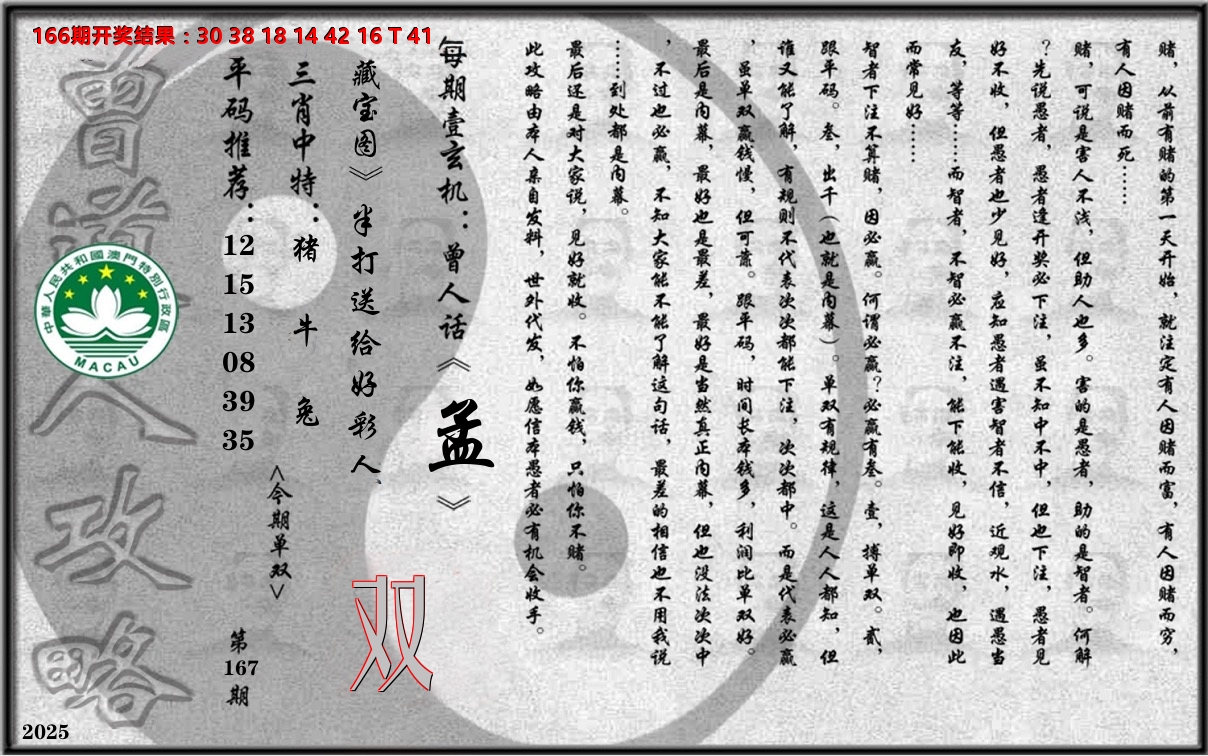 166期开奖结果：30 38 18 14 42 16 T 41
赌，从前有赌的第一天开始，就注定有人因赌而富，有人因赌而穷，
有人因赌而死……
赌，可说是害人不浅，但助人也多。害的是愚者，助的是智者。何解
？先说愚者，愚者逢开奖必下注，虽不知中不中，但也下注，愚者见
好不收，但愚者也少见好，应知愚者遇害智者不信，近观水，遇愚当
友，等等……而智者，不智必赢不注，能下能收，见好即收，也因此
而常见好……
智者下注不算赌，因必赢。何谓必赢？必赢有叁。壹，搏单双。贰，
跟平码。叁，出千（也就是内幕）。单双有规律，这是人人都知，但
谁又能了解，有规则不代表次次都能下注，次次都中。而是代表必赢
，虽单双赢钱慢，但可靠。跟平码，时间长本钱多，利润比单双好。
最后是内幕，最好也是最差，最好是当然真正内幕，但也没法次次中
，不过也必赢，不知大家能不能了解这句话，最差的相信也不用我说
……到处都是内幕。
最后还是对大家说，见好就收。不怕你赢钱，只怕你不赌。
此攻略由本人亲自发料，世外代发，如愿信本愚者必有机会收手。
每期壹玄机：曾人话《孟》
藏宝图》半打送给好彩人、
双
三肖中特：猪 牛 兔
<今期单双>
平码推荐：12 15 13 08 39 35
第167期
曾道人攻略
中華人民共和國澳門特別行政區
MACAU
2025